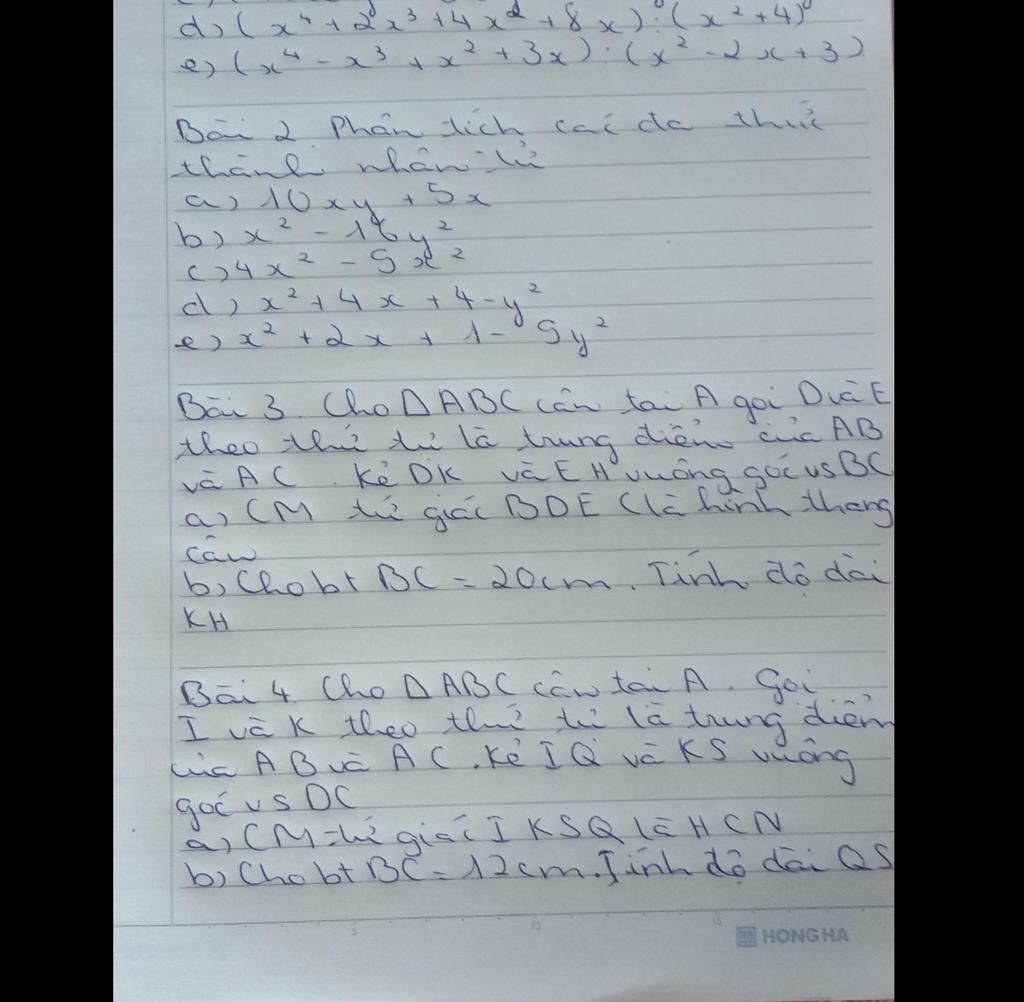 d) (x⁴ + 2x³ + 4x² + 8x) : (x² + 4)
e) (x⁴ - x³ + x² + 3x) : (x² - 2x + 3)
Bài 2 Phân tích các đa thức
thành nhân tử
a) 10xy + 5x
b) x² - 16y²
c) 4x² - 9x²
d) x² + 4x + 4 - y²
e) x² + 2x + 1 - 9y²
Bài 3. Cho ΔABC cân tại A gọi D và E
theo thứ tự là trung điểm của AB
và AC. Kẻ DK và EH vuông góc vs BC
a) CM tứ giác BDEC là hình thang
cân
b) Cho bt BC = 20cm. Tính độ dài
KH
Bài 4. Cho ΔABC cân tại A. Gọi
I và K theo thứ tự là trung điểm
của AB và AC. Kẻ IQ và KS vuông
góc vs DC
a) CM tứ giác IKSQ là HCN
b) Cho bt BC = 12cm. Tính độ dài QS
5 10 15
HONG HA